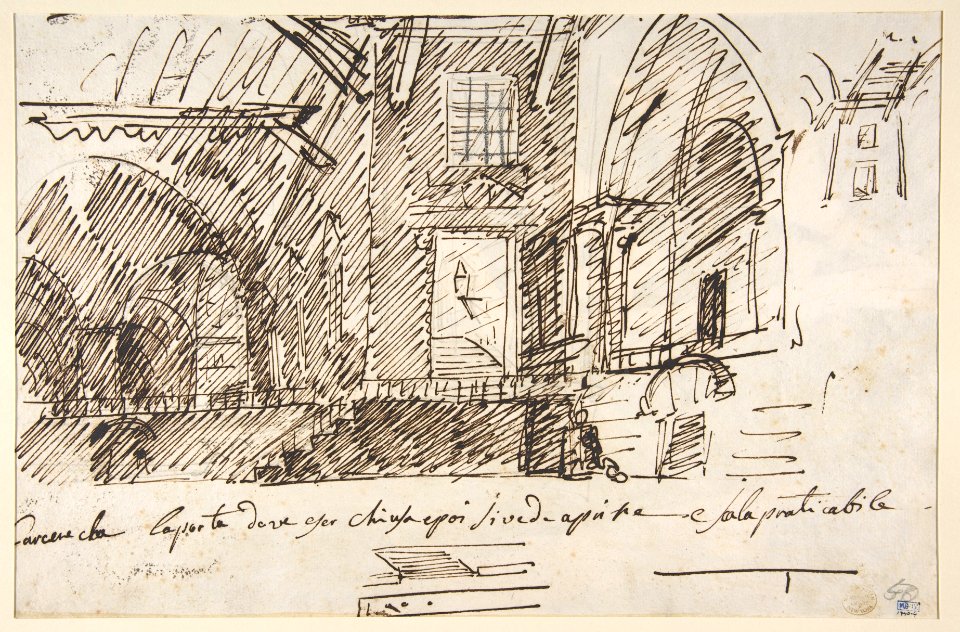 Carcere che la porta deve eser chiusa e poi si vede aprire e scala praticabile
58